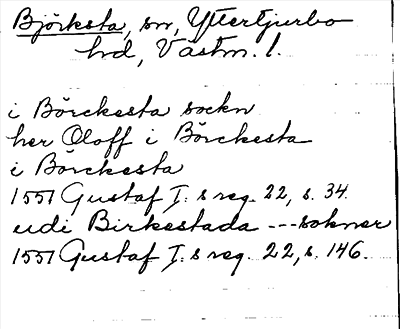 Björksta, sn, Yttertjurbo
hd, Västm. l.
i Börckesta sockn
her Oloff i Börckesta
i Börckesta
1551 Gustaf I:s reg. 22, s. 34.
udi Birkestada --- sokner
1551 Gustaf I:s reg. 22, s. 146.